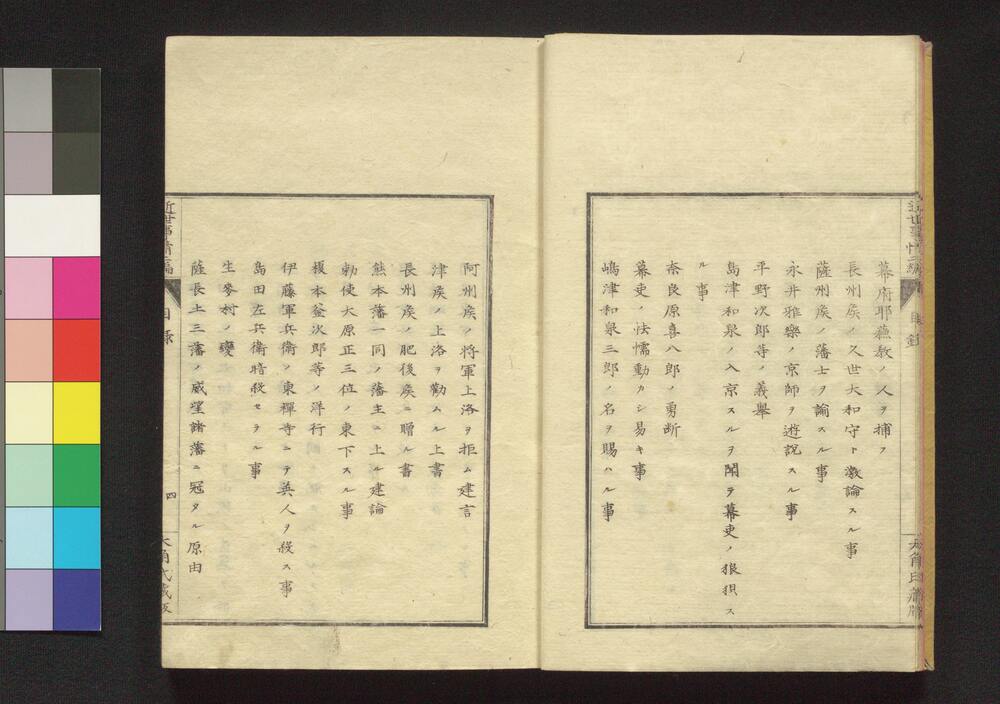 幕府耶蘇教ノ人ヲ捕フ
長州矦ノ久世大和守ト激論スル事
薩州矦ノ藩士ヲ諭スル事
永井雅樂ノ京師ヲ遊説スル事
平野次郎等ノ義擧
島津和泉ノ入京スルヲ聞テ幕吏ノ狼狽ス
ル事
奈良原喜八郎ノ勇断
幕吏ノ怯懦動カシ易キ事
嶋津和泉三郎ノ名ヲ賜ハル事
阿州矦ノ将軍上洛ヲ拒ム建言
津矦ノ上洛ヲ勸ムル上書
長州矦ノ肥後矦ニ贈ル書
熊本藩一同ノ藩主ニ上ル建論
勅使大原正三位ノ東下スル事
榎本釜次郎等ノ洋行
伊藤軍兵衛ノ東禪寺ニテ英人ヲ殺ス事
島田左兵衛暗殺セラル事
生麥村ノ變
薩長土三藩ノ威望諸藩ニ冠タル原由
目録
四